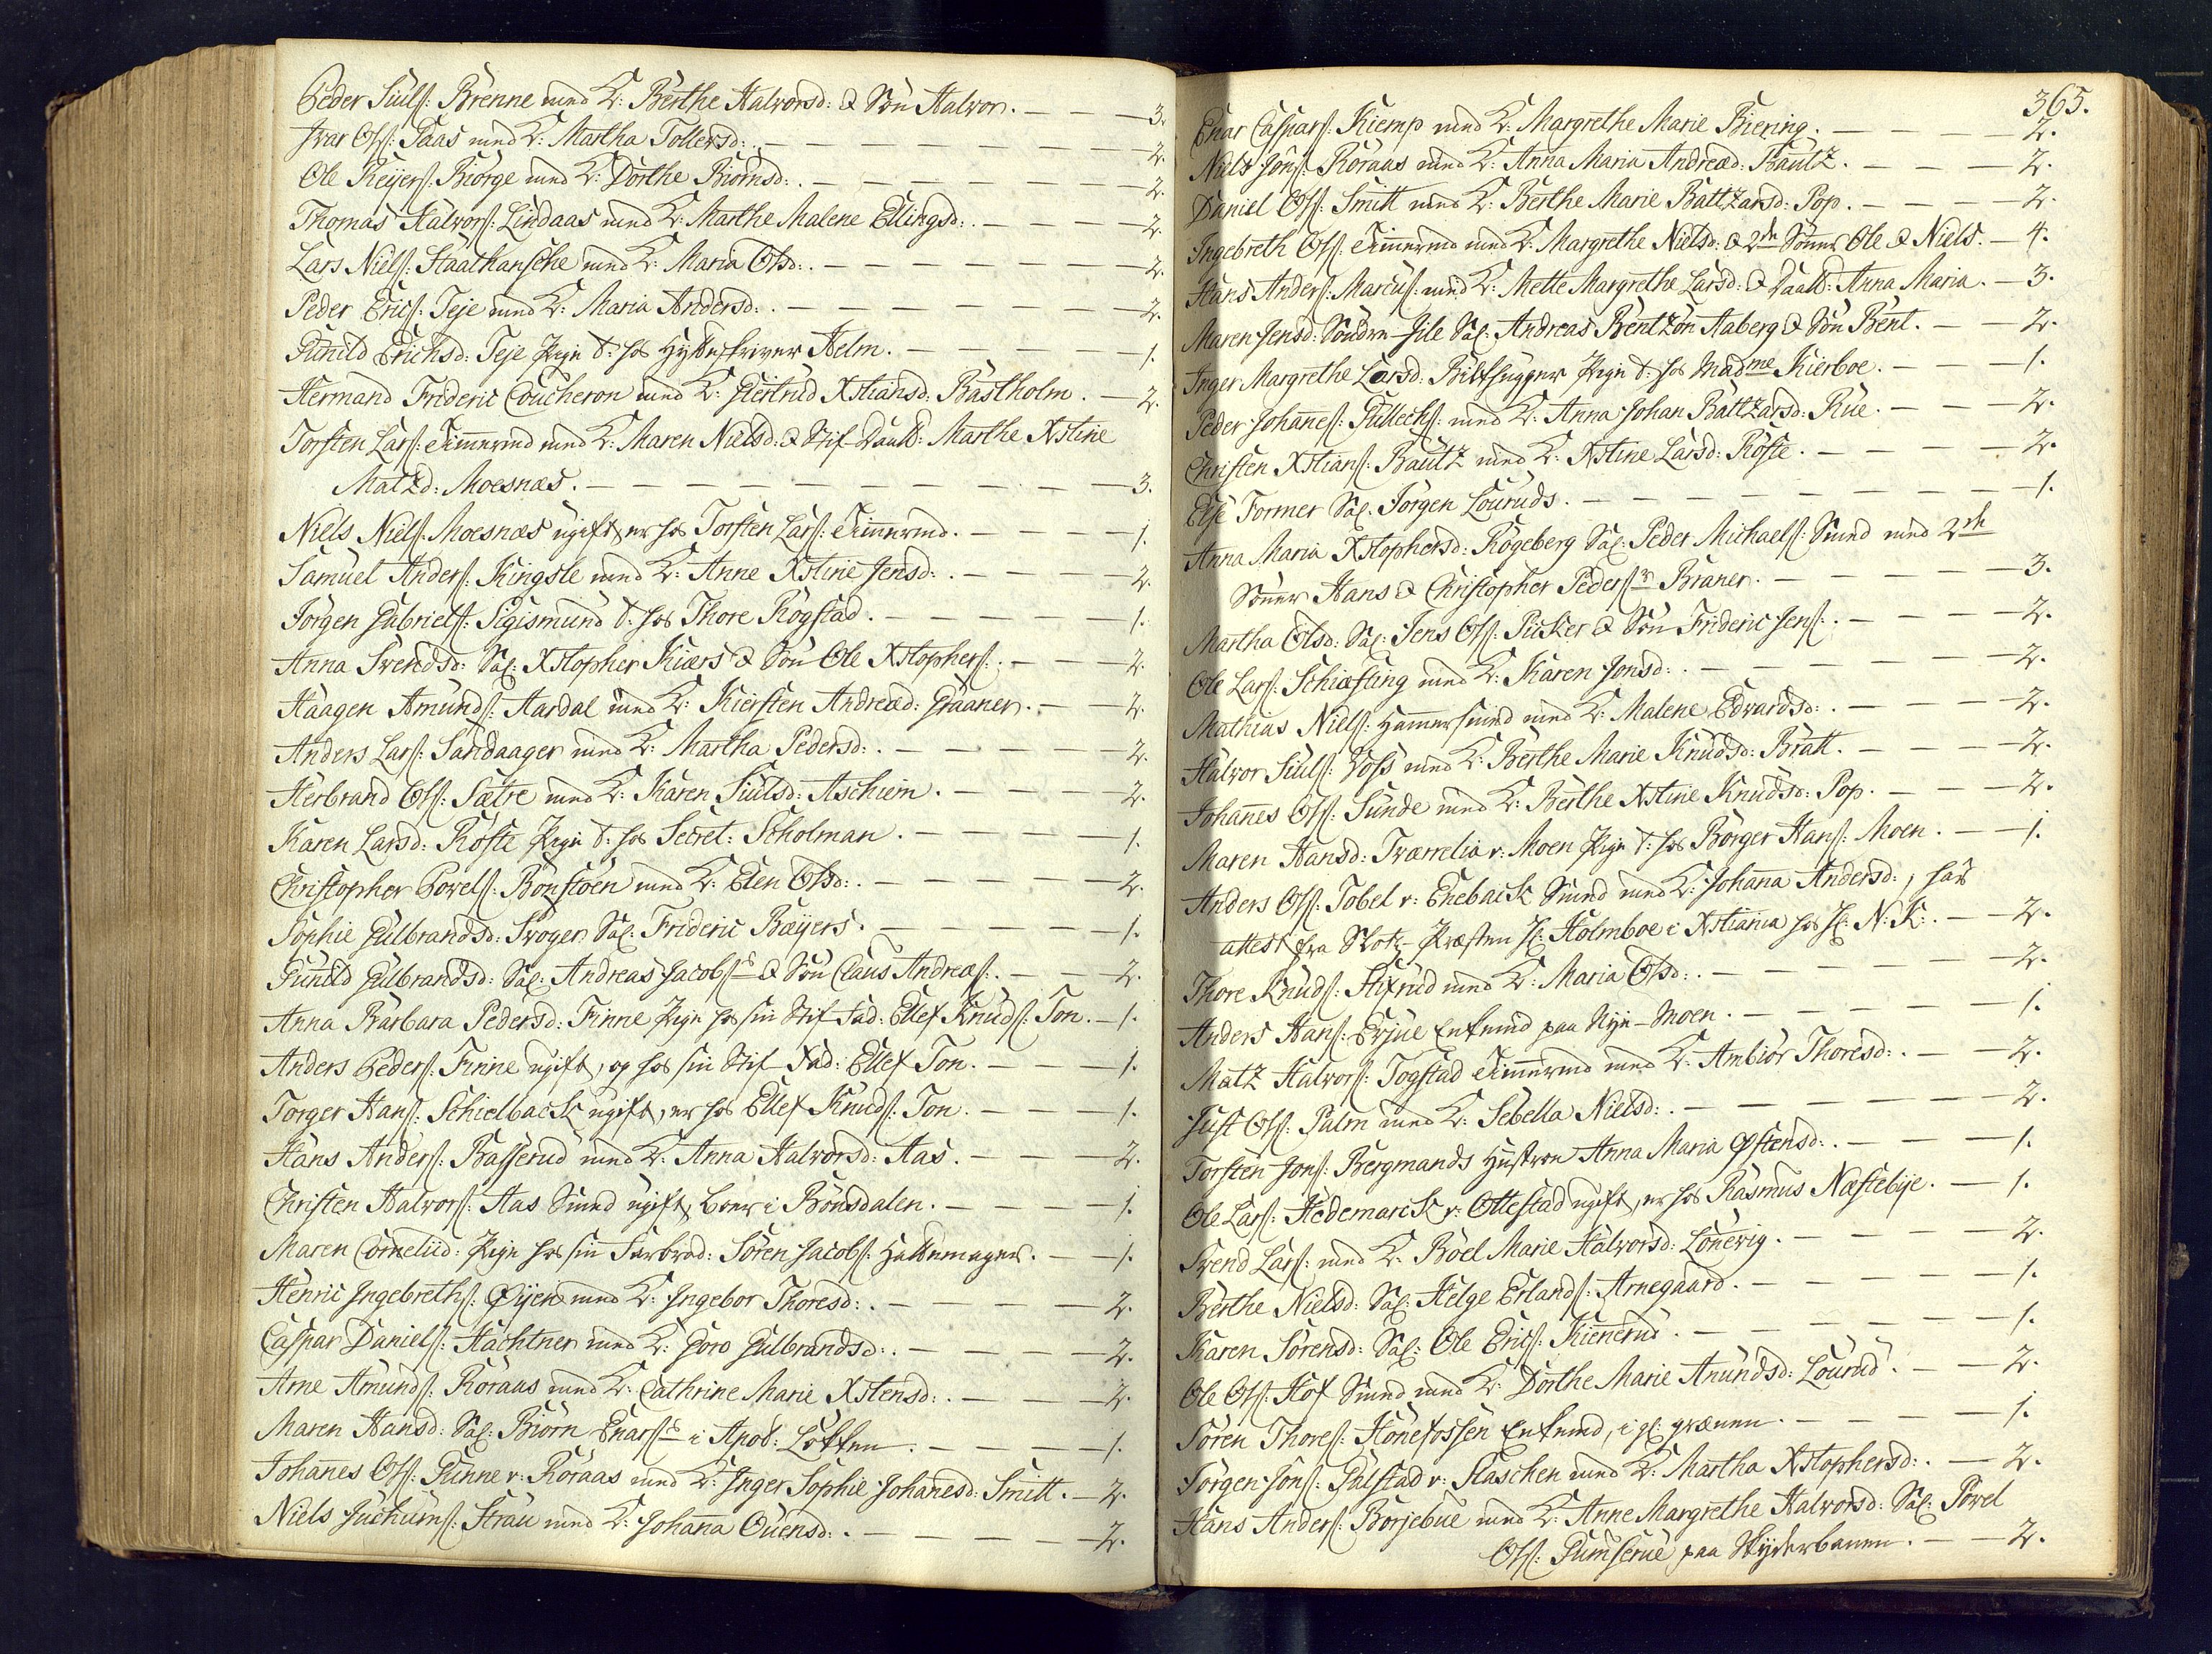 Peder Siuls: Brenne med K: Berthe Halvorsd: & Søn Halvor. — — — 3.
Ivar Ols: Paas med K: Martha Tollersd: — — — — — — 2.
Ole Reijers: Biørge med K: Dorthe Biørnsd: . — — — — — — 2.
Thomas Halvors: Lindaas med K: Marthe Malene Ellingsd: . — — — — 2.
Lars Niels: Staalhansche med K: Maria Olsd: . — — — — — — 2.
Peder Erics: Teje med K: Maria Andersd: . — — — — — — 2.
Gunild Erichsd: Teje Pige t: hos Hytteskriver Helm. — — — — 1.
Hermand Frideric Coucheron med K: Giertrud Xstiansd: Bastholm. — 2.
Torsten Lars: Timmermd med K: Maren Nielsd: & Stif Daatt: Marthe Xstine
Matzd: Moesnæs. — — — — — — — — 3.
Niels Niels: Moesnæs ugift, er hos Torsten Lars: Timmermd. — — — — 1.
Samuel Anders: Kingsle med K: Anne Xstine Jensd: . — — — — 2.
Jørgen Gabriels: Sigismund t: hos Thore Rogstad. — — — — — 1.
Anna Svendsd: Sal: Xstopher Kiærs & Søn Ole Xstophers: . — — — 2.
Haagen Amunds: Aardal med K: Kiersten Andreæd: Graaner. — — — 2.
Anders Lars: Sandaager med K: Martha Pedersd: . — — — — — 2.
Herbrand Ols: Sætre med K: Karen Siulsd: Aschiem. — — — — 2.
Karen Larsd: Røste Pige t: hos Secret: Scholman. — — — — — 1.
Christopher Povels: Bonstøen med K: Elen Olsd: . — — — — — 2.
Sophie Gulbrandsd: Svoger Sal: Frideric Baÿers. — — — — — 1.
Gunild Gulbrandsd: Sal: Andreas Jacobs: & Søn Claus Andreæs: . — — — 2.
Anna Barbara Pedersd: Finne Pige hos sin Stif Fad: Ellef Knuds: Ton. — 1.
Anders Peders: Finne ugift, og hos sin Stif-Fad: Ellef Ton. — — — 1.
Torger Hans: Schielbæck ugift, er hos Ellef Knuds: Ton. — — — 1.
Hans Anders: Basserud med K: Anna Halvorsd: Aas. — — — — 2.
Christen Halvors: Aas Smed ugift, boer i Bønsdalen. — — — — 1.
Maren Corneliid: Pige hos sin Farbrod: Søren Jacobs: Hattemager. — — 1.
Henric Ingebreths: Øÿen med K: Ingebor Thoresd: . — — — — — 2.
Caspar Daniels: Hachtner med K: Goro Gulbrandsd: . — — — — — 2.
Arne Amunds: Røraas med K: Cathrine Marie Xstensd: . — — — — 2.
Maren Hansd: Sal: Biørn Enars: i Apot: Løkken. — — — — — 1.
Johanes Ols: Gunne v: Røraas med K: Inger Sophie Johanesd: Smitt. — 2.
Niels Juchums: Strau med K: Johana Ouensd: . — — — — 2.
365.
Enar Caspars: Kiemp med K: Margrethe Marie Biering. — — — — 2.
Niels Jons: Røraas med K: Anna Maria Andreæd: Bautz. — — — 2.
Daniel Ols: Smitt med K: Berthe Marie Baltzarsd: Pop. — — — 2.
Ingebreth Ols: Timmermd med K: Margrethe Nielsd: & 2de Sønner Ole & Niels. — 4.
Hans Anders: Marcus: med K: Mette Margrethe Larsd: & Daatt: Anna Maria. — 3.
Maren Jensd: Søndre-Jile Sal: Andreas Bentzon Aaberg & Søn Bent. — — 2.
Inger Margrethe Larsd: Bilthugger Pige t: hos Madme Kierboe. — — — 1.
Peder Johanes: Gullechs: med K: Anna Johan Baltzarsd: Rue. — — 2.
Christen Xstians: Bautz med K: Xstine Larsd: Røste. — — — — 2.
Else Former Sal: Jørgen Louruds. — — — — — — — 1.
Anna Maria Xstophersd: Rogeberg Sal: Peder Michaels: Smed med 2de
Sønner Hans & Christopher Peders: Braner. — — — — — 3.
Martha Olsd: Sal: Jens Ols: Pucker & Søn Frideric Jens: . — — — 2.
Ole Lars: Schiæfling med K: Karen Jonsd: . — — — — — 2.
Mathias Niels: Hammersmed med K: Malene Edvardsd: . — — — 2.
Halvor Siuls: Voss med K: Berthe Marie Knudsd: Bratt. — — — 2.
Johanes Ols: Sunde med K: Berthe Xstine Knudsd: Pop. — — — 2.
Maren Hansd: Tværrelia v: Moen Pige t: hos Børger Hans: Moen. — 1.
Anders Ols: Tobel v: Eneback Smed med K: Johana Andersd: , har
attest fra Slotz-Præsten Hr: Holmboe i Xstiania hos Hr: N: K: . — 2.
Thore Knuds: Stifrud med K: Maria Olsd: . — — — — — 2.
Anders Hans: Erjue Enkemd paa Nye-Moen. — — — — — 1.
Matz Halvors: Togstad Timmermd med K: Ambiør Thoresd: . — — 2.
Just Ols: Palm med K: Sebella Nielsd: . — — — — — 2.
Torsten Jons: Bergmands Hustroe Anna Maria Østensd: . — — — 1.
Ole Lars: Hedemarck v: Ottestad ugift, er hos Rasmus Næstebÿe. — 1.
Svend Lars: med K: Boel Marie Halvorsd: Lonevig. — — — — 2.
Berthe Nielsd: Sal: Helge Erlands: Arnegaard. — — — — — 1.
Karen Sørensd: Sal: Ole Erics: Kiennerud. — — — — — 1.
Ole Ols: Hof Smed med K: Dorthe Marie Amundsd: Lourud. — — 2.
Søren Thores: Hønefossen Enkemd, i gl: grænen. — — — — 1.
Jørgen Jons: Galstad v: Slaschen med K: Martha Xstophersd: . — — 2.
Hans Anders: Borjebue med K: Anne Margrethe Halvorsd: Sal: Povel
Ols: Gumserue paa Skÿderbanen. — — 2.